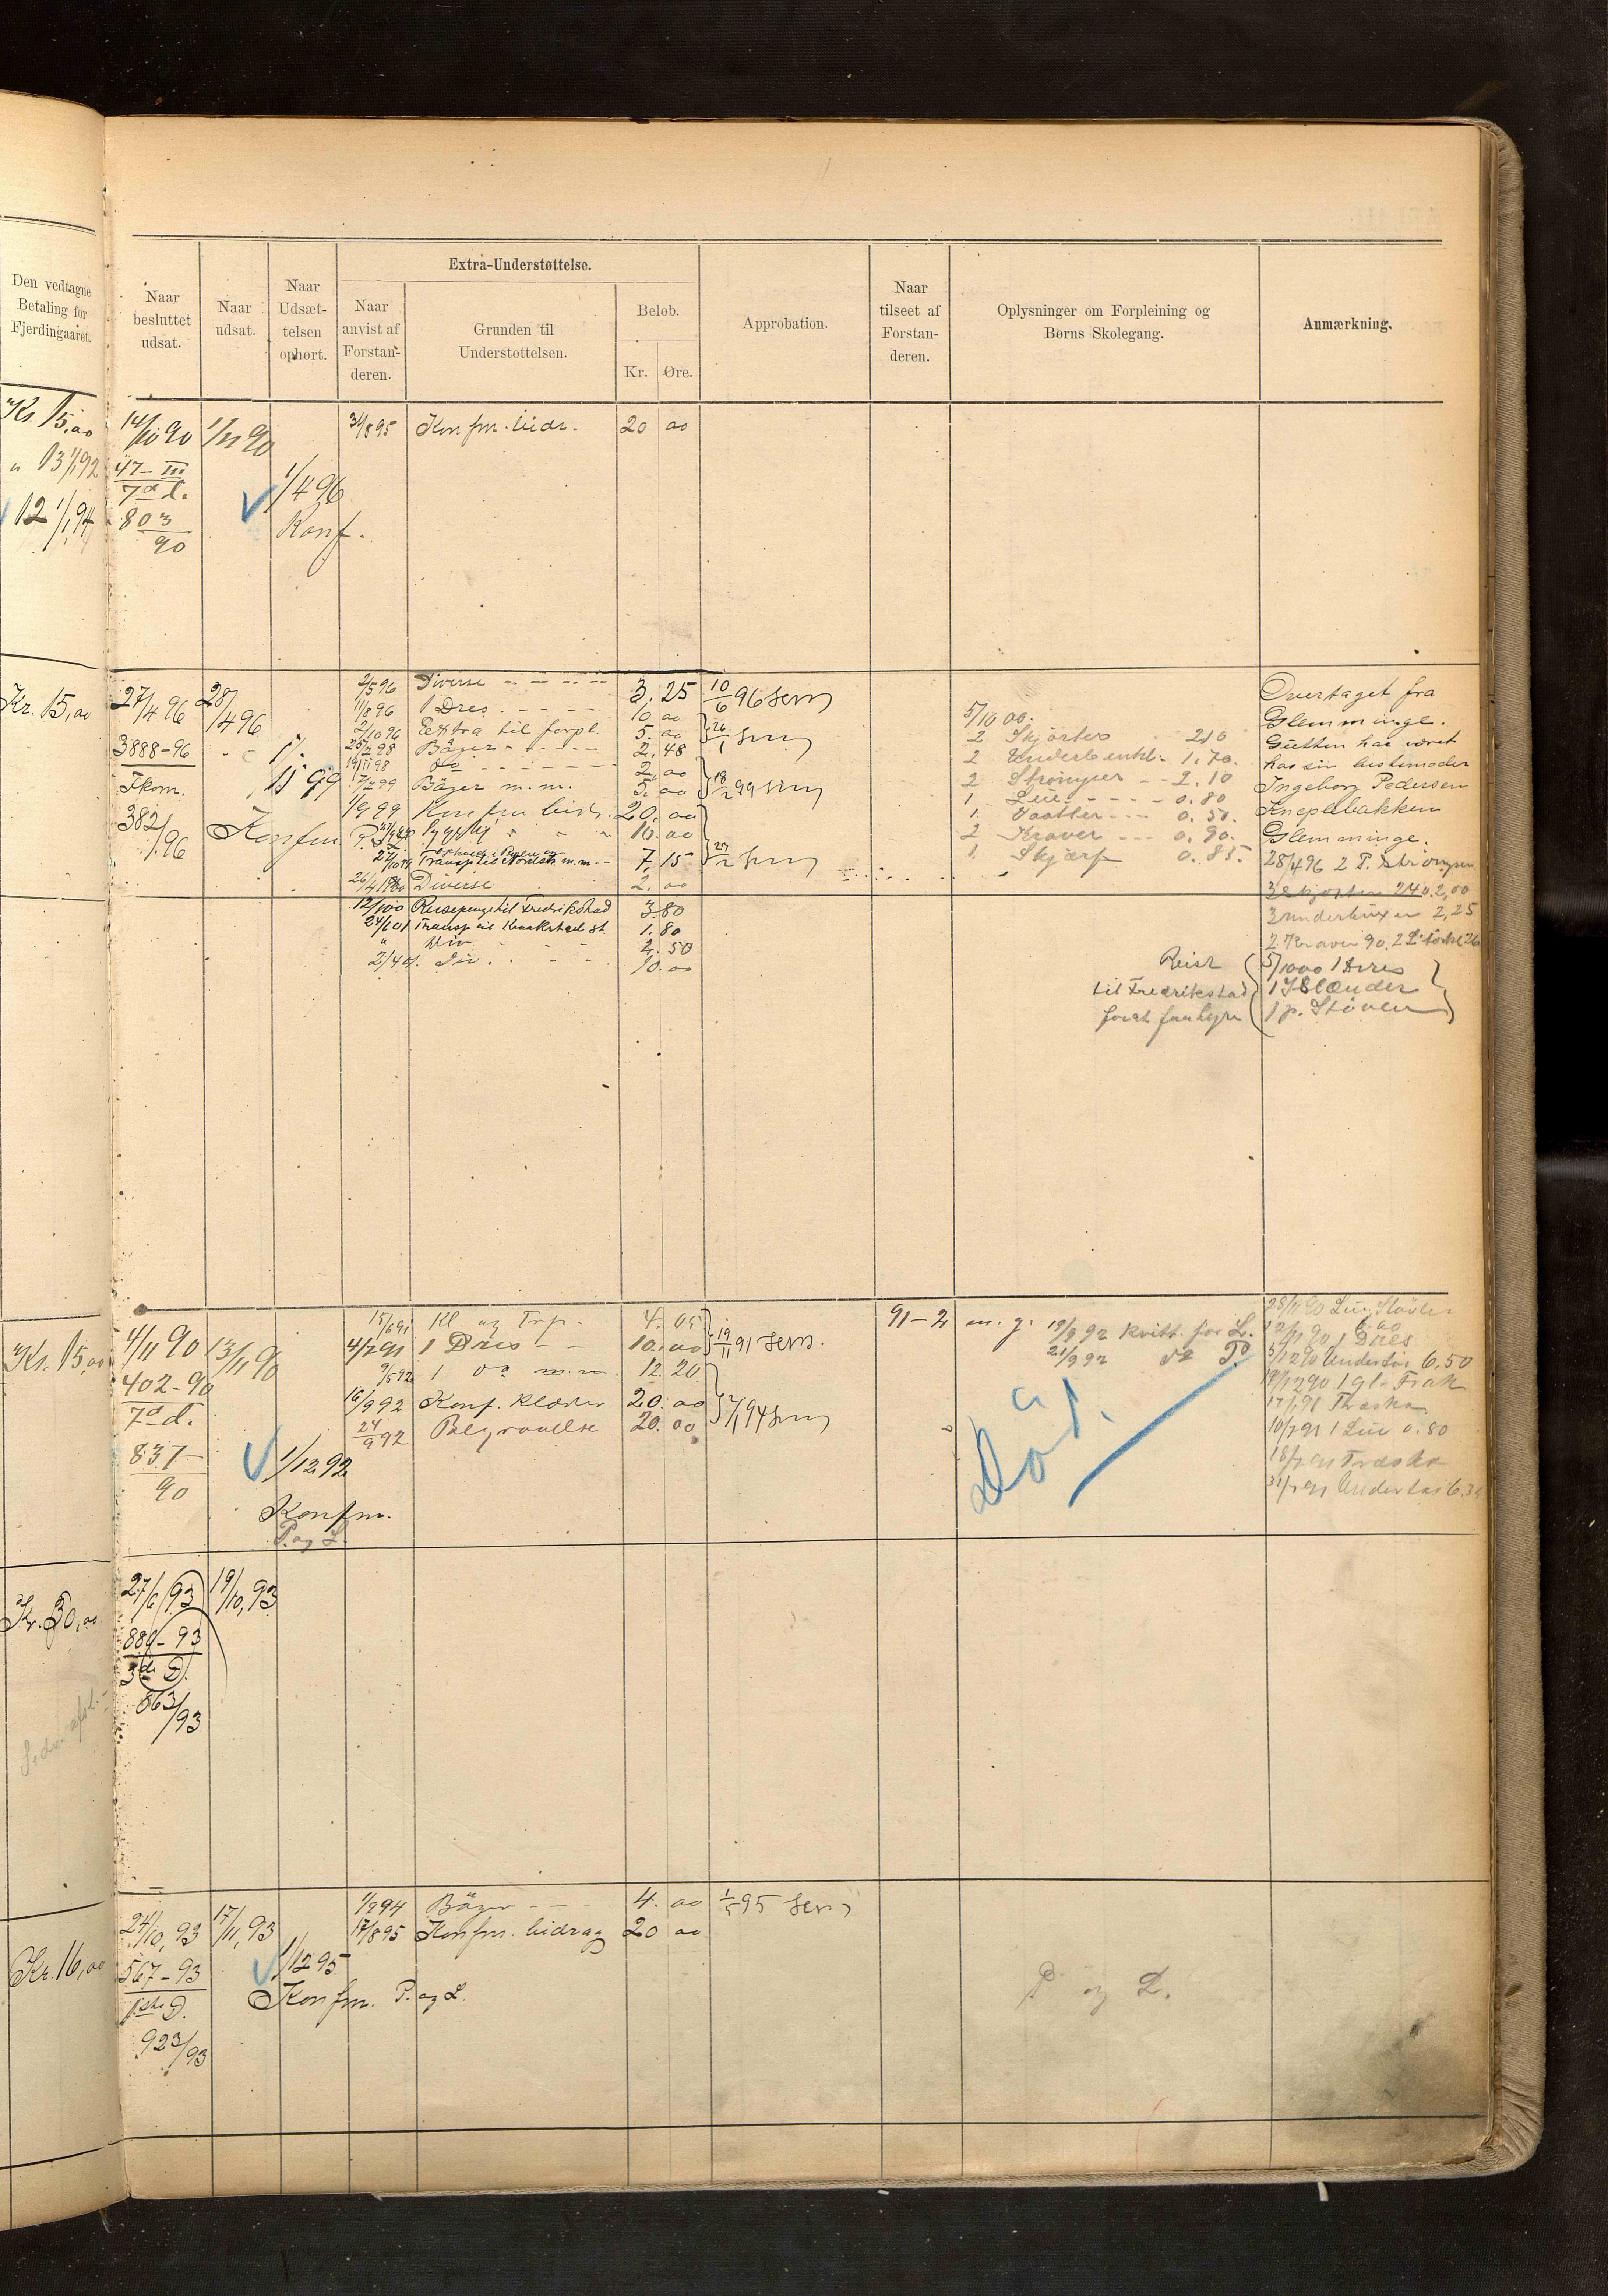 Den vedtagne
Betaling for
Fjerdingaaret.
Naar
besluttet
udsat.
Naar
udsat.
Naar
Udsæt-
telsen
ophørt.
Extra-Understøttelse.
Naar
anvist af
Forstan-
deren.
Grunden til
Understøttelsen.
Beløb.
Kr. Øre.
Approbation.
Naar
tilseet af
Forstan-
deren.
Oplysninger om Forpleining og
Børns Skolegang.
Anmærkning.
Kr. 15,00 14/10 90 1/11 90 31/8 95 Konfm. bidr. 20 00
" 13 1/1 92 47-III
7d d.
12 1/1 94 803
90
1/4 96
Konf.
Kr. 15,00 27/4 96 28/4 96
3888-96
Fkom.
382/96
1/11 99
Konfm
2/5 96 Diverse 3. 25 10/6 96 Sem
11/8 96 1 Dres 10. 00
2/10 96 Extra til forpl. 5. 00
Bøger 2. 48
19/11 98 do 2. 00
7/2 99 Bøger m.m. 5. 00 18/2 99 Sem
1/9 99 Konfm bidr. 20. 00
10. 00
Transp til m.m. 7. 15
26/4 1900 Diverse 2. 00
12/1 00 Reisepenge til Fredrikstad 3.80
24/1 01 Transp til st. 1.80
" Div 2. 50
2/4 01. Div. 10. 00
5/10 00.
2 Skjorter 210
2 Underbenkl. 1.70.
2 Strømper 2.10
1. Lue 0.80
1. Vaatter 0.50.
2 Kraver 0.90.
1. Skjærf 0.85.
Overtaget fra
Glemminge.
Gutten har været
hos sin bestemoder
Ingeborg Pedersen
Kneplebakken
Glemminge.
28/4 96 2 P. Strømper
3 Skjorter 240. 2,00
3 underbuxer 2,25
2 Kraver 90.
Reist
til Fredrikstad
forat
5/10 00 1 Dres
1 Islænder
1 p. Støvler
Kr. 15,00 4/11 90 13/11 90
402-90
7d d.
837
90
1/12 92
Konfm.
P. og L.
15/6 91 Kl. og Trp. 4. 05
4/7 91 1 Dres 10. 00 19/11 91 Sem.
9/5 92 1 do m.m. 12. 20
16/9 92 Konf. klæder 20. 00
24/9 92 Begravelse 20. 00
91-2 m. g. 19/9 92 kvitt. for L.
21/9 92 do P.
Død.
Lue, Støvler
6.00
12/11 90 1 Dres
5/12 90 Undertøi 6.50
19/12 90 1 gl. Frak
17/1 91 Træsko
10/2 91 1 Lue 0.80
Træsko
Undertøi
Kr. 30,00 27/6 93 19/10, 93
889-93
3die D.
863/93
Kr. 16,00 24/10, 93 17/11, 93
567-93
1ste D.
923/93
1/12 95
Konfm. P. og L.
1/2 94 Bøger 4. 00 1/5 95 Sem
17/8 95 Konfm. bidrag 20 00
P og L.